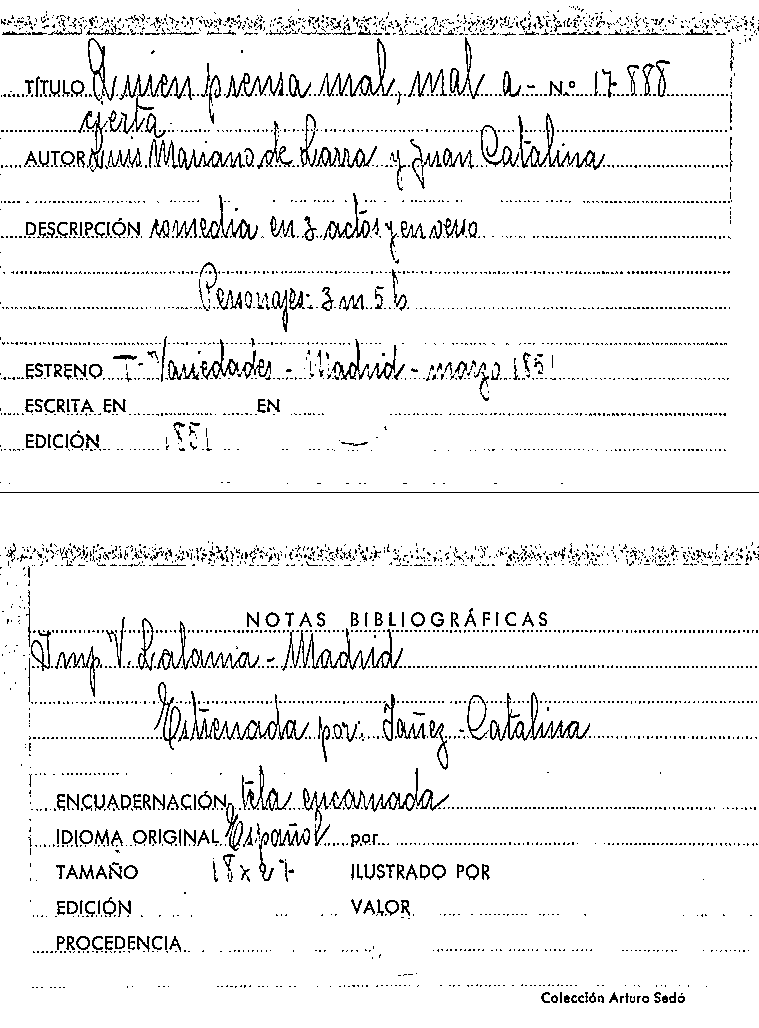 TÍTULO Quien piensa mal, mal a- N.º 17888
cierta
AUTOR Luis Mariano de Larra y Juan Catalina
DESCRIPCIÓN comedia en 3 actos y en verso
Personajes: 3 m 5 h
ESTRENO T- Variedades - Madrid - marzo 1851
ESCRITA EN EN
EDICIÓN 1851
NOTAS BIBLIOGRÁFICAS
Imp V. Lalama - Madrid
Estrenada por: Yañez - Catalina
ENCUADERNACIÓN tela encarnada
IDIOMA ORIGINAL Español por
TAMAÑO 18 x 27 ILUSTRADO POR
EDICIÓN VALOR
PROCEDENCIA
Colección Arturo Sedó